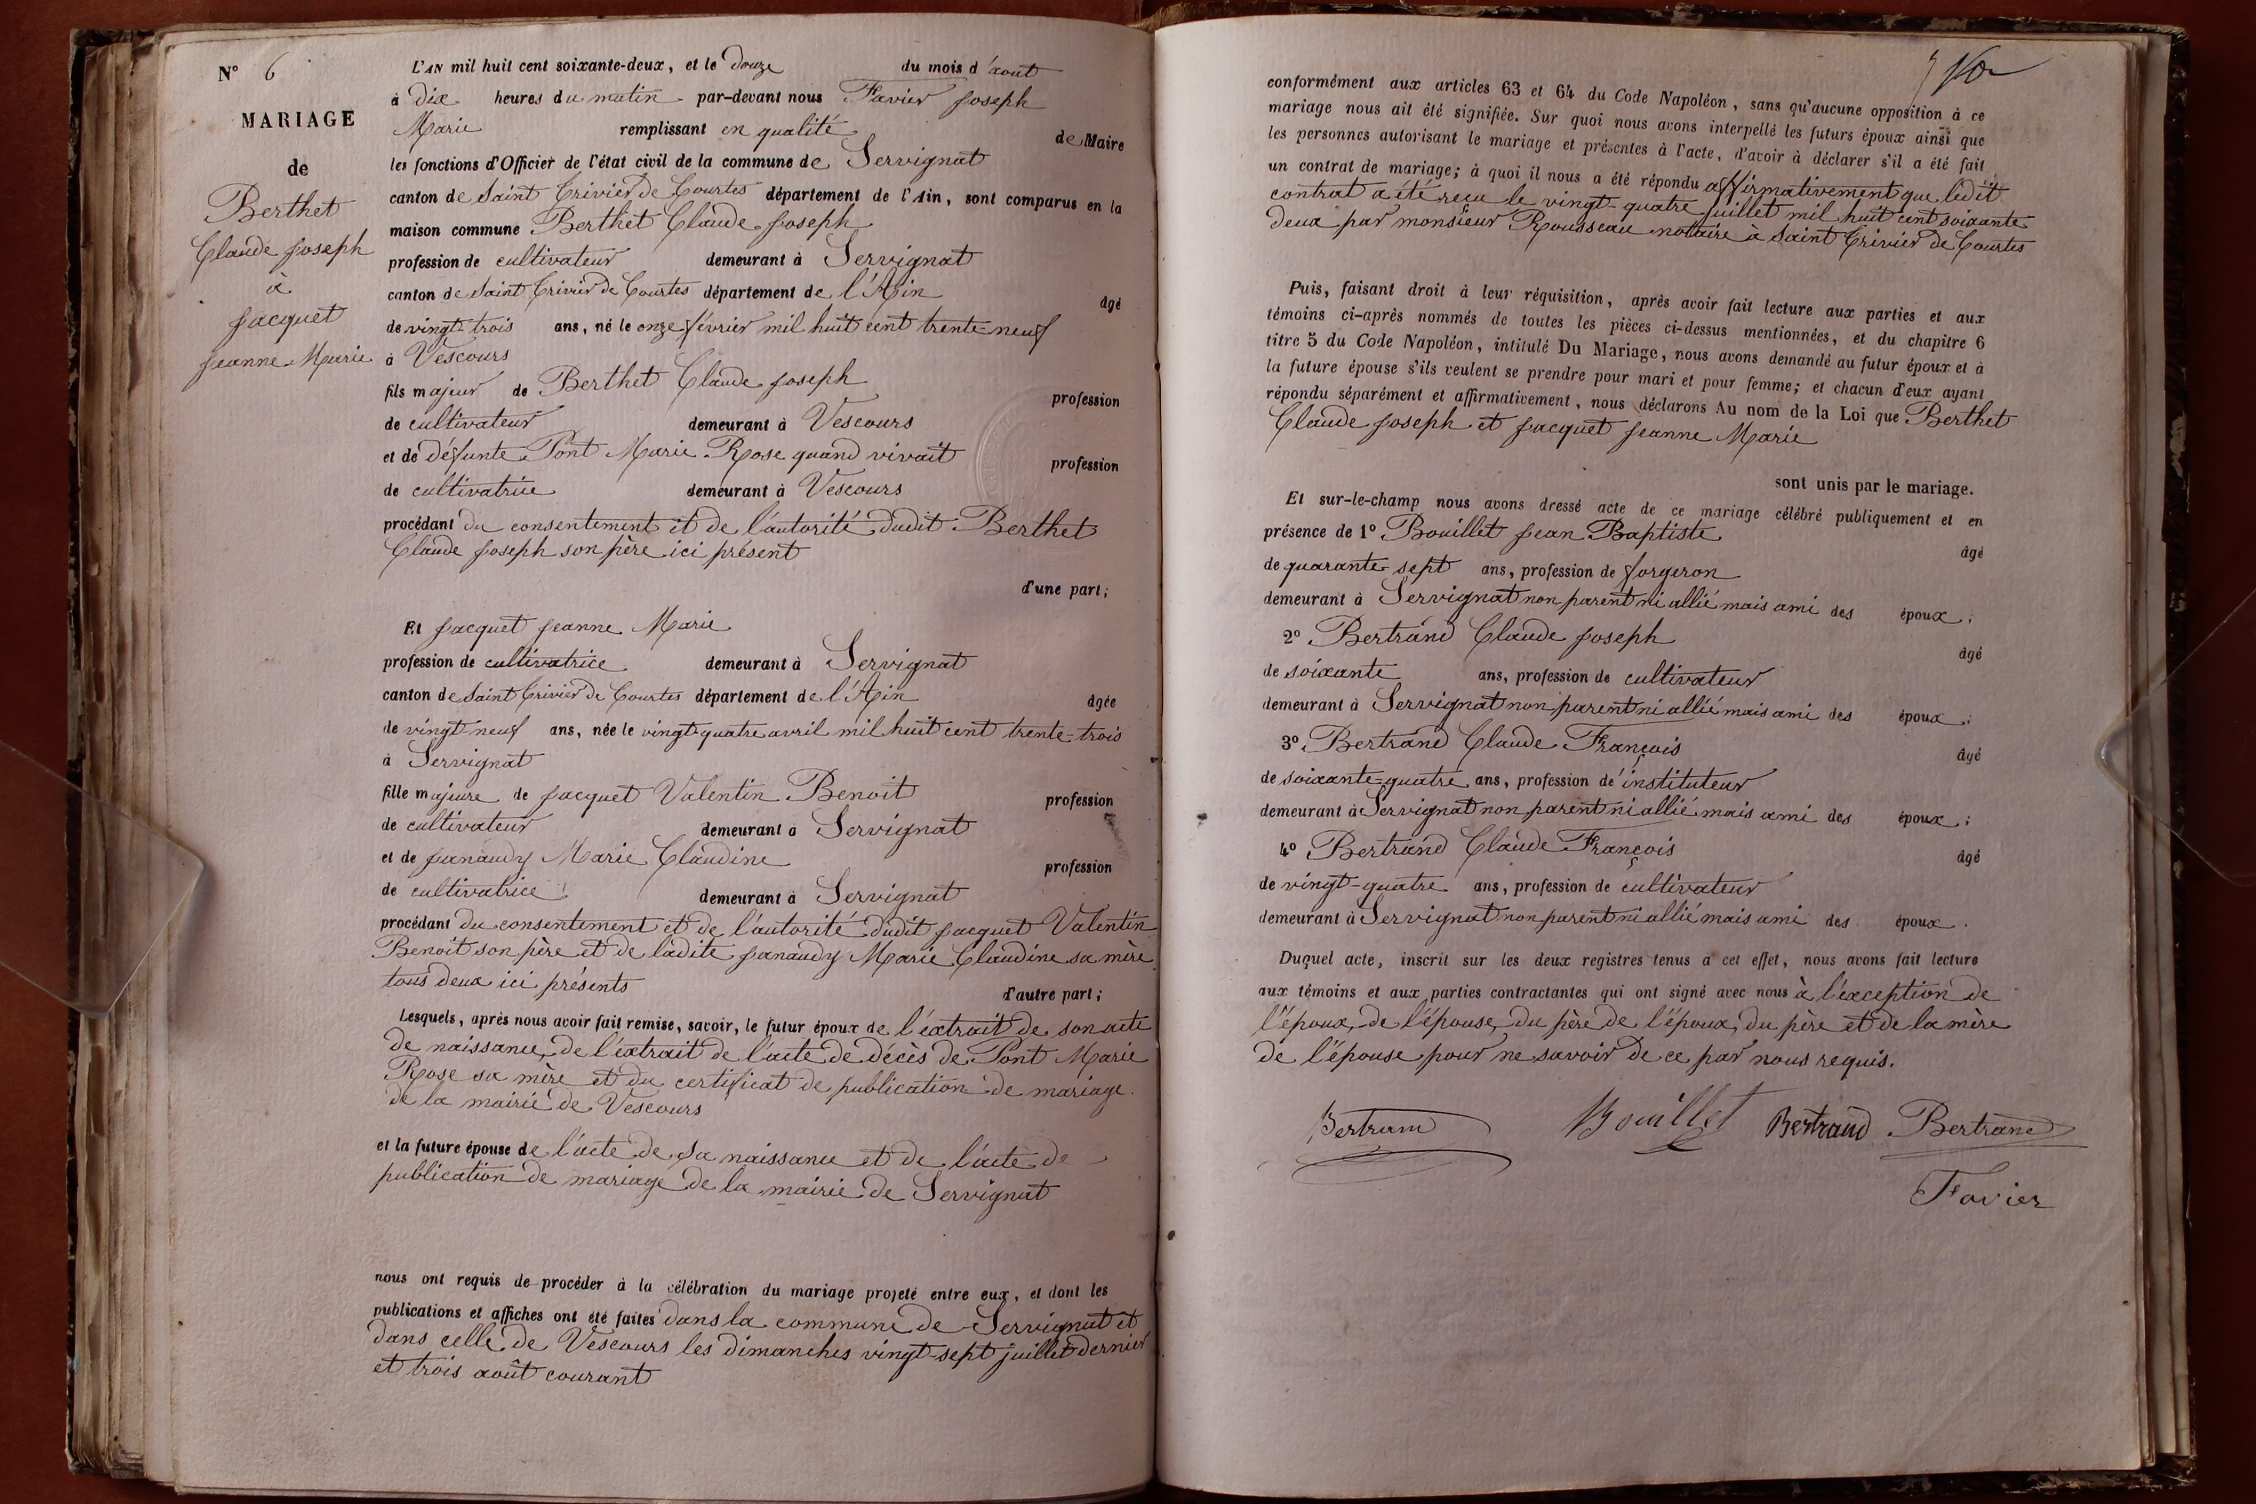 N° 6
MARIAGE
de
Berthet
Claude Joseph
à
Jacquet
Jeanne Marie
L'AN mil huit cent soixante-deux, et le douze du mois d'août
à dix heures du matin par-devant nous Favier Joseph
Marie remplissant en qualité de Maire
les fonctions d'Officier de l'état civil de la commune de Servignat
canton de Saint Trivier de Courtes département de l'Ain, sont comparus en la
maison commune Berthet Claude Joseph
profession de cultivateur demeurant à Servignat
canton de Saint Trivier de Courtes département de l'Ain âgé
de vingt-trois ans, né le onze février mil huit cent trente-neuf
à Vescours
fils majeur de Berthet Claude Joseph profession
de cultivateur demeurant à Vescours
et de défunte Pont Marie Rose quand vivait profession
de cultivatrice demeurant à Vescours
procédant du consentement et de l'autorité dudit Berthet
Claude Joseph son père ici présent
d'une part;
Et Jacquet Jeanne Marie
profession de cultivatrice demeurant à Servignat
canton de Saint Trivier de Courtes département de l'Ain âgée
de vingt-neuf ans, née le vingt-quatre avril mil huit cent trente-trois
à Servignat
fille majeure de Jacquet Valentin Benoit profession
de cultivateur demeurant à Servignat
et de Janaudy Marie Claudine profession
de cultivatrice demeurant à Servignat
procédant du consentement et de l'autorité dudit Jacquet Valentin
Benoit son père et de ladite Janaudy Marie Claudine sa mère
tous deux ici présents
d'autre part;
Lesquels, après nous avoir fait remise, savoir, le futur époux de l'extrait de son acte
de naissance, de l'extrait de l'acte de décès de Pont Marie
Rose sa mère et du certificat de publication de mariage
de la mairie de Vescours
et la future épouse de l'acte de sa naissance et de l'acte de
publication de mariage de la mairie de Servignat
nous ont requis de procéder à la célébration du mariage projeté entre eux, et dont les
publications et affiches ont été faites dans la commune de Servignat et
dans celle de Vescours les dimanches vingt-sept juillet dernier
et trois août courant
conformément aux articles 63 et 64 du Code Napoléon, sans qu'aucune opposition à ce
mariage nous ait été signifiée. Sur quoi nous avons interpellé les futurs époux ainsi que
les personnes autorisant le mariage et présentes à l'acte, d'avoir à déclarer s'il a été fait
un contrat de mariage; à quoi il nous a été répondu affirmativement que ledit
contrat a été reçu le vingt-quatre juillet mil huit cent soixante
deux par monsieur Rousseau nottaire à Saint Trivier de Courtes
Puis, faisant droit à leur réquisition, après avoir fait lecture aux parties et aux
témoins ci-après nommés de toutes les pièces ci-dessus mentionnées, et du chapitre 6
titre 5 du Code Napoléon, intitulé Du Mariage, nous avons demandé au futur époux et à
la future épouse s'ils veulent se prendre pour mari et pour femme; et chacun d'eux ayant
répondu séparément et affirmativement, nous déclarons Au nom de la Loi que Berthet
Claude Joseph et Jacquet Jeanne Marie
sont unis par le mariage.
Et sur-le-champ nous avons dressé acte de ce mariage célébré publiquement et en
présence de 1° Bouillet Jean Baptiste âgé
de quarante-sept ans, profession de forgeron
demeurant à Servignat non parent ni allié mais ami des époux;
2° Bertrand Claude Joseph âgé
de soixante ans, profession de cultivateur
demeurant à Servignat non parent ni allié mais ami des époux;
3° Bertrand Claude François âgé
de soixante-quatre ans, profession de instituteur
demeurant à Servignat non parent ni allié mais ami des époux;
4° Bertrand Claude François âgé
de vingt-quatre ans, profession de cultivateur
demeurant à Servignat non parent ni allié mais ami des époux.
Duquel acte, inscrit sur les deux registres tenus à cet effet, nous avons fait lecture
aux témoins et aux parties contractantes qui ont signé avec nous à l'exception de
l'époux, de l'épouse, du père de l'époux, du père et de la mère
de l'épouse pour ne savoir de ce par nous requis.
Bertrand Bouillet Bertrand Bertrand
Favier